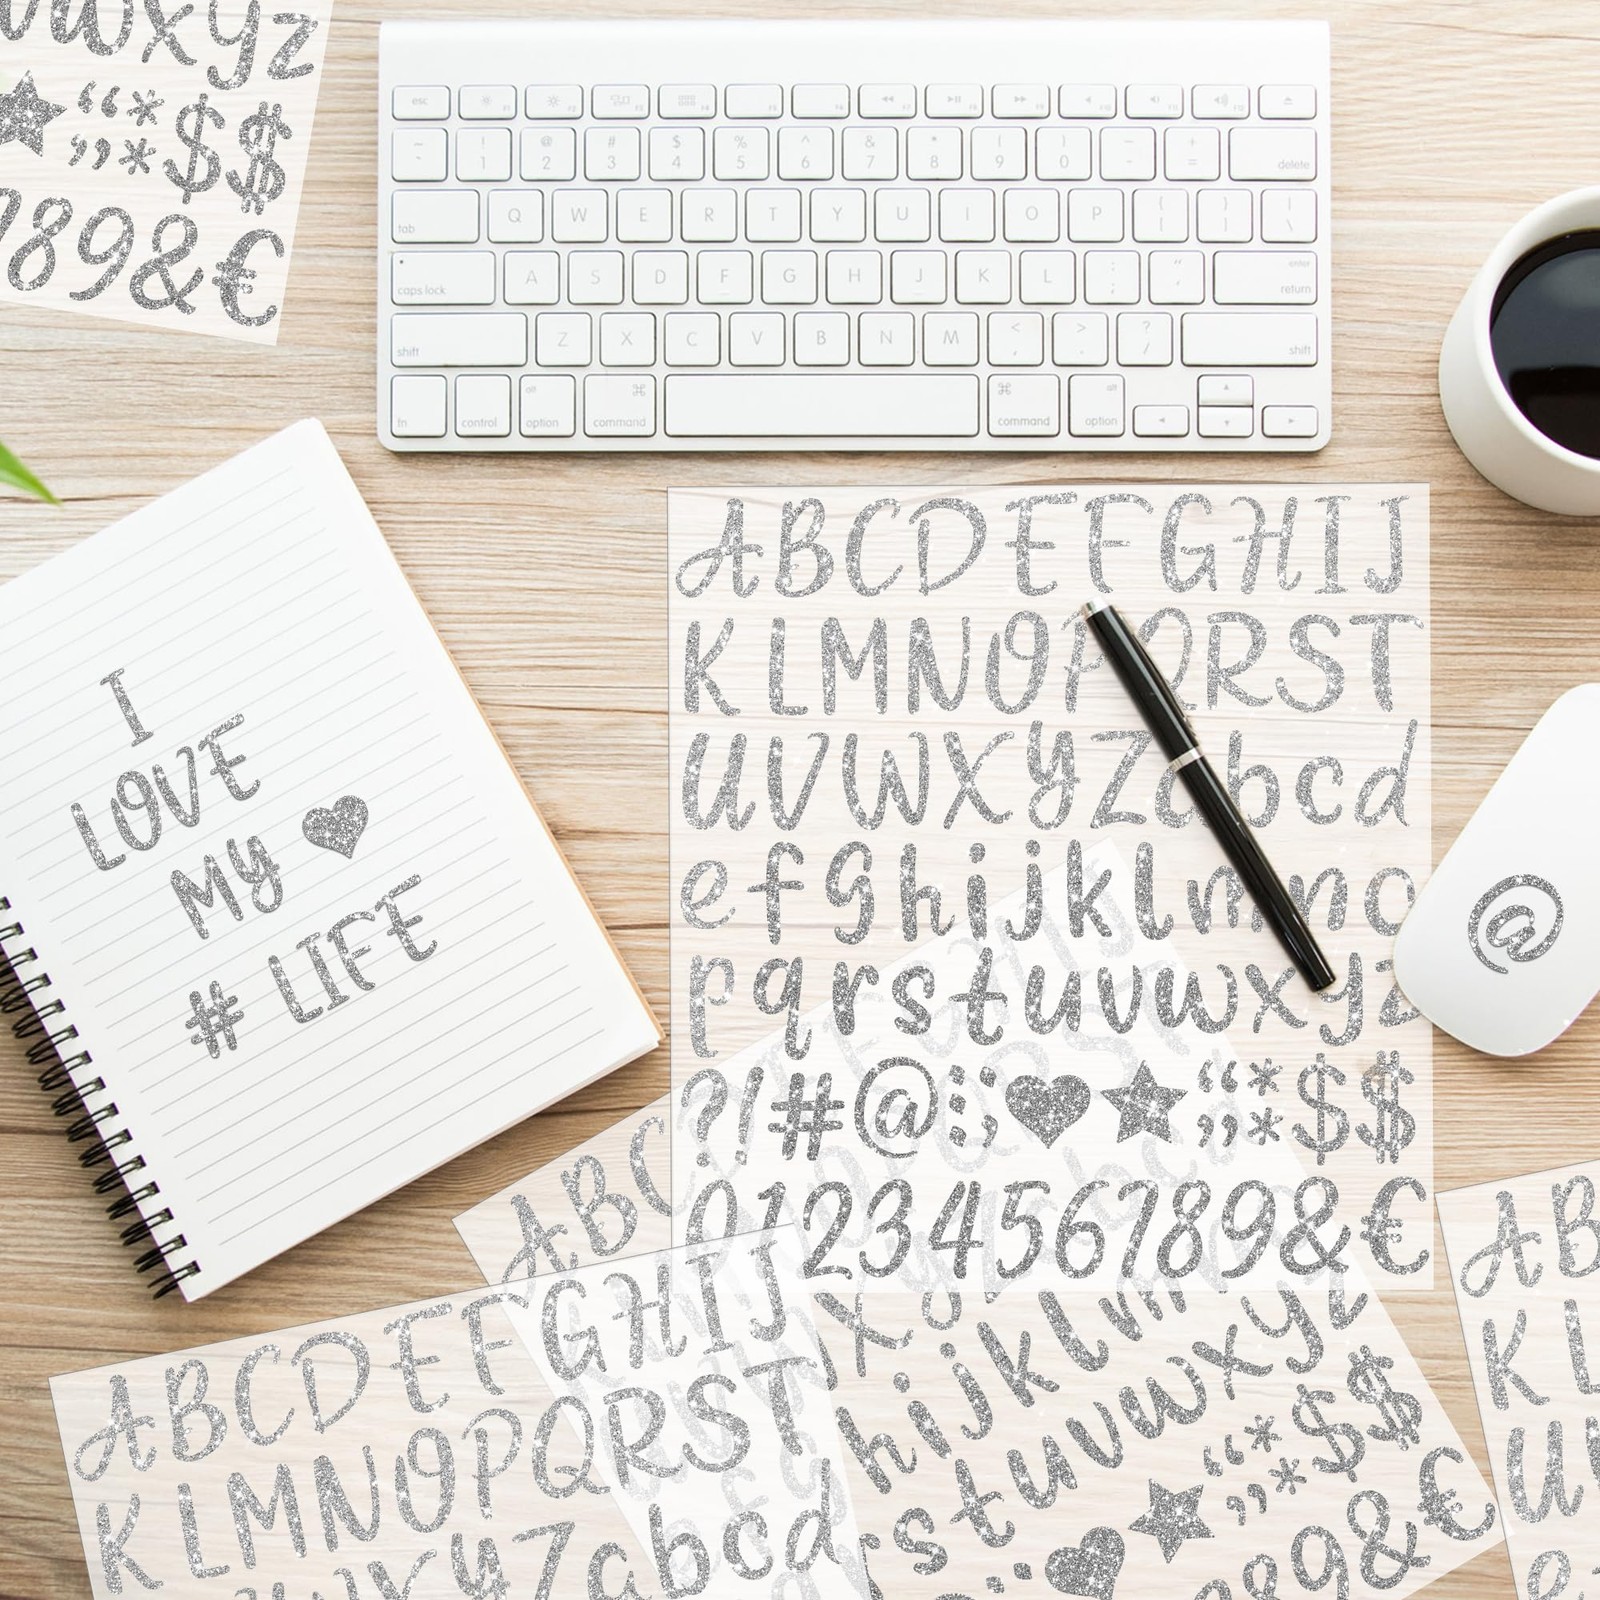 uvwxyz
“*$$
”*
789&€
esc F1 F2 F3 F4 F5 F6 F7 F8 F9 F10 F11 F12
~ ! @ # $ % ^ & * ( ) - +
` 1 2 3 4 5 6 7 8 9 0 - = delete
tab Q W E R T Y U I O P { } |
[ ] \
caps lock A S D F G H J K L : " enter
; ' return
shift Z X C V B N M < > ? shift
, . /
fn control alt option ⌘ command ⌘ command alt option
I
LOVE
MY ♥
# LIFE
ABCDEFGHIJ
KLMNOPQRST
UVWXYZabcd
efghijklmno
pqrstuvwxyz
?!#@:;♥★“”**$$
0123456789&€
@
ABC
ABCDEFGHIJ
KLMNOPQRST
abcd
hijklmno
rstuvwxyz
♥★“”**$$
89&€
AB
KL
UV
e